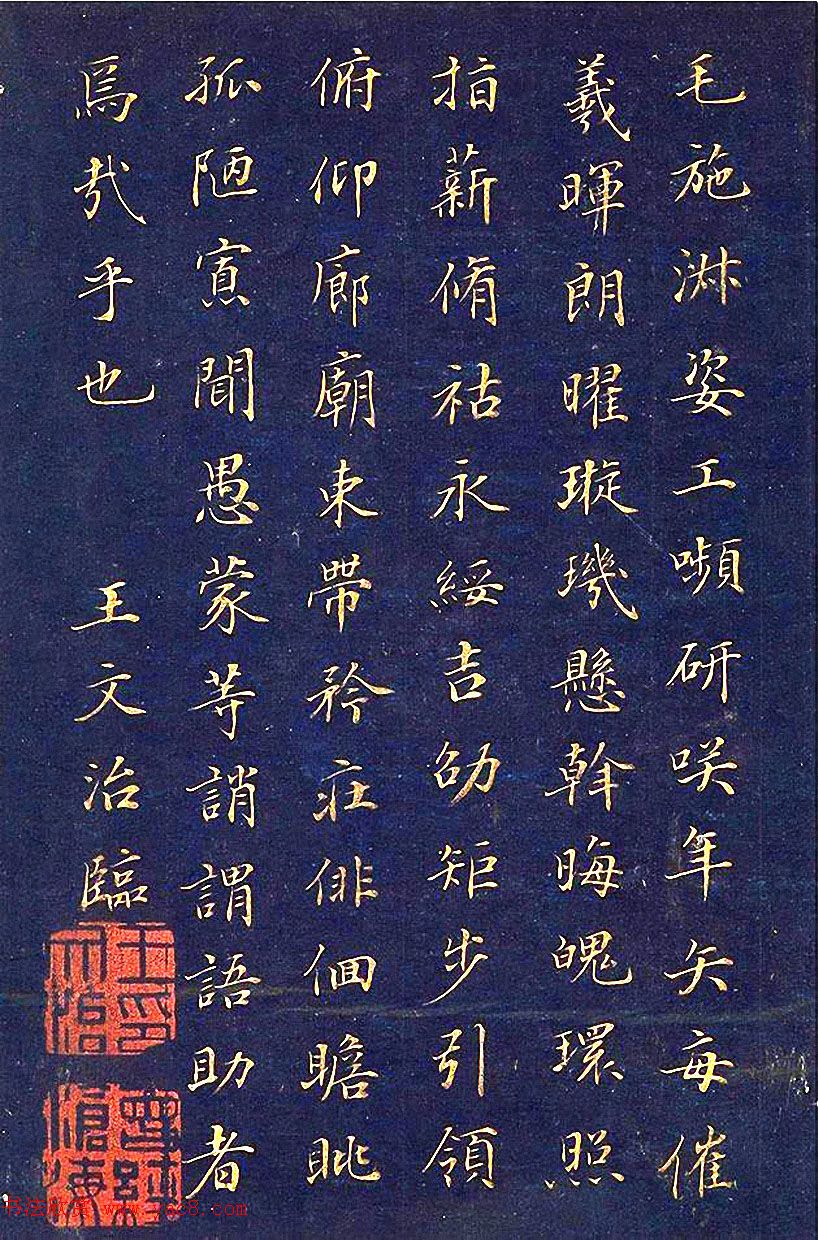 毛施淋姿工嚬研咲年矢每催
羲暉朗曜璇璣懸斡晦魄環照
指薪脩祜永綏吉劭矩步引領
俯仰廊廟束帶矜莊俳佪瞻眺
孤陋寡聞愚蒙等誚謂語助者
焉哉乎也 王文治臨
王文治印
曾經滄海
书法欣赏 www.yac8.com